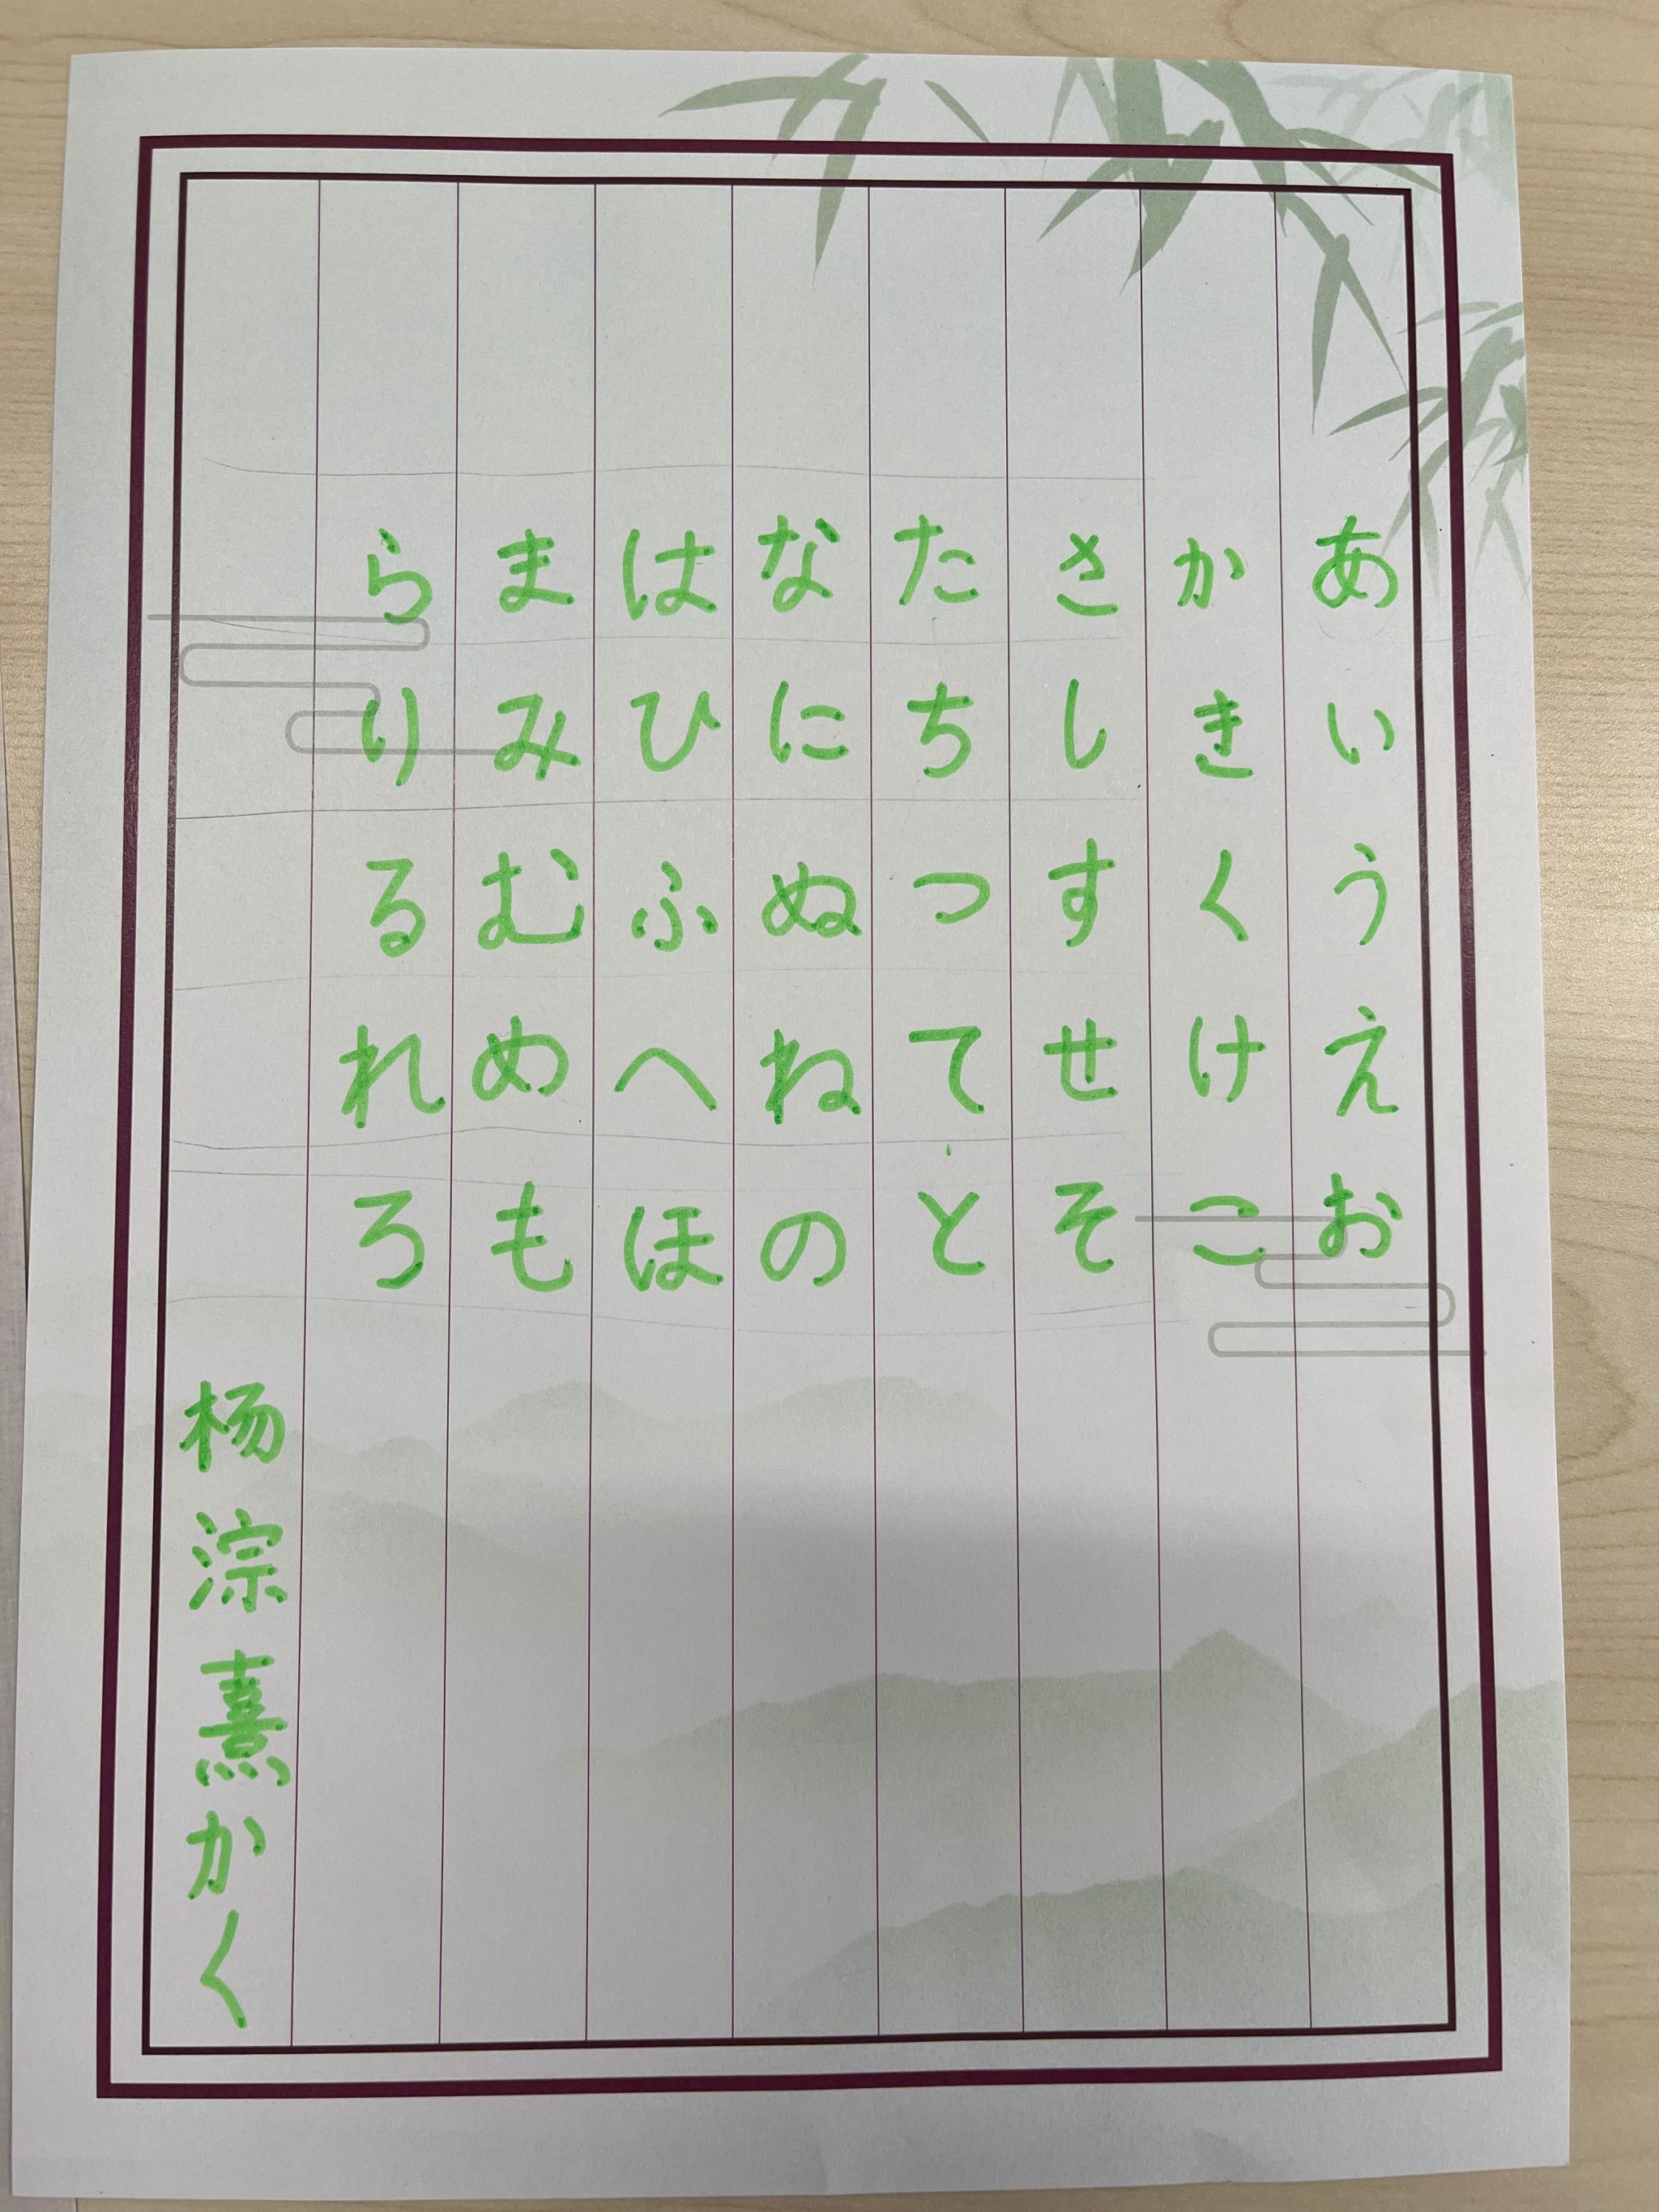 あいうえお
かきくけこ
さしすせそ
たちつてと
なにぬねの
はひふへほ
まみむめも
らりるれろ
杨淙熹かく